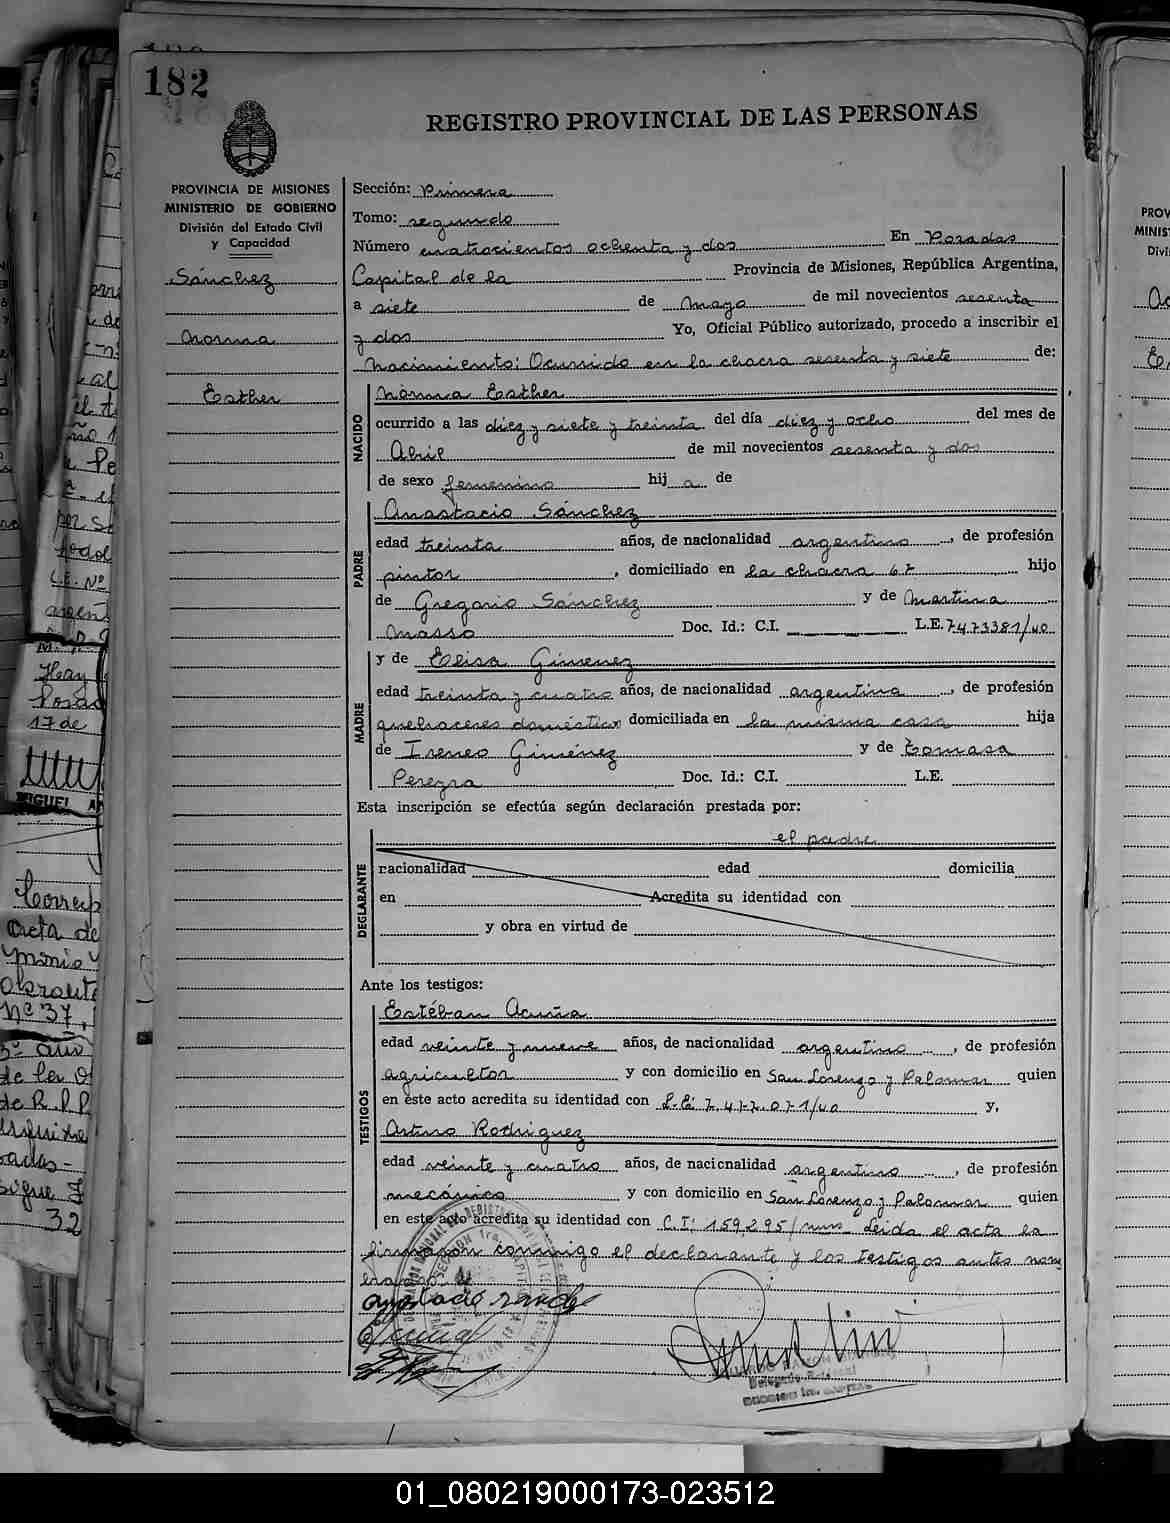 182
REGISTRO PROVINCIAL DE LAS PERSONAS
PROVINCIA DE MISIONES
MINISTERIO DE GOBIERNO
División del Estado Civil
y Capacidad
Sánchez
Norma
Esther
Sección: Primera
Tomo: segundo
Número cuatrocientos ochenta y dos En Posadas
Capital de la Provincia de Misiones, República Argentina,
a siete de mayo de mil novecientos sesenta
y dos Yo, Oficial Público autorizado, procedo a inscribir el
nacimiento: Ocurrido en la chacra sesenta y siete de:
NACIDO
Norma Esther
ocurrido a las diez y siete y treinta del día diez y ocho del mes de
Abril de mil novecientos sesenta y dos
de sexo femenino hij a de
PADRE
Anastacio Sánchez
edad treinta años, de nacionalidad argentino, de profesión
pintor, domiciliado en la chacra 67 hijo
de Gregorio Sánchez y de Martina
Masso Doc. Id.: C.I. L.E. 7473381/40
MADRE
y de Elisa Gimenez
edad treinta y cuatro años, de nacionalidad argentina, de profesión
quehaceres domésticos domiciliada en la misma casa hija
de Ireneo Giménez y de Tomasa
Pereyra Doc. Id.: C.I. L.E.
Esta inscripción se efectúa según declaración prestada por:
DECLARANTE
el padre
nacionalidad edad domicilia
en Acredita su identidad con
y obra en virtud de
Ante los testigos:
TESTIGOS
Estéban Acuña
edad veinte y nueve años, de nacionalidad argentino, de profesión
agricultor y con domicilio en San Lorenzo y Palomar quien
en este acto acredita su identidad con L.E. 7.477.071/40 y,
Arturo Rodriguez
edad veinte y cuatro años, de nacionalidad argentino, de profesión
mecánico y con domicilio en San Lorenzo y Palomar quien
en este acto acredita su identidad con C.I: 159.295/mnes Leida el acta la
firmaron conmigo el declarante y los testigos antes nom
erados
01_080219000173-023512